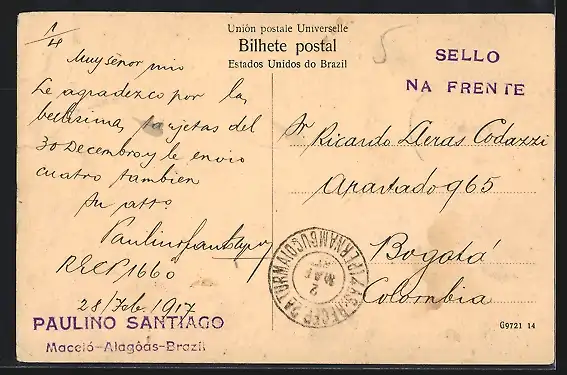 Unión postale Universelle
Bilhete postal
Estados Unidos do Brazil
SELLO
NA FRENTE
1/4
Muy señor mio
Le agradezco por la,
bellisima, tarjetas del
30 Decembro y le envio
cuatro tambien
Su atto
Paulino Santiago
RECP 1660
28/Feb. 1917
PAULINO SANTIAGO
Maceió-Alagôas-Brazil
5
Sr Ricardo Lleras Codazzi
Apartado 965
Bogotá
Colombia
PERNAMBUCO
2
MAI
G9721 14